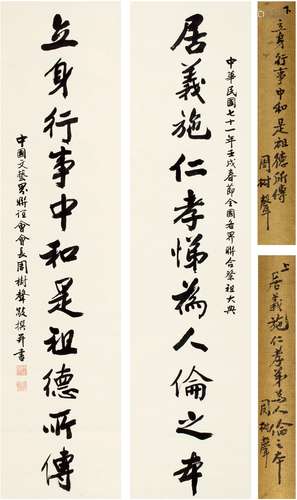 居義施仁孝悌為人倫之本
中華民國七十一年壬戌春節全國各界聯合祭祖大典
立身行事中和是祖德所傳
中國文藝界聯誼會會長周樹聲敬撰并書
下
立身行事中和是祖德所傳
周樹聲
上
居義施仁孝弟為人倫之本
周樹聲